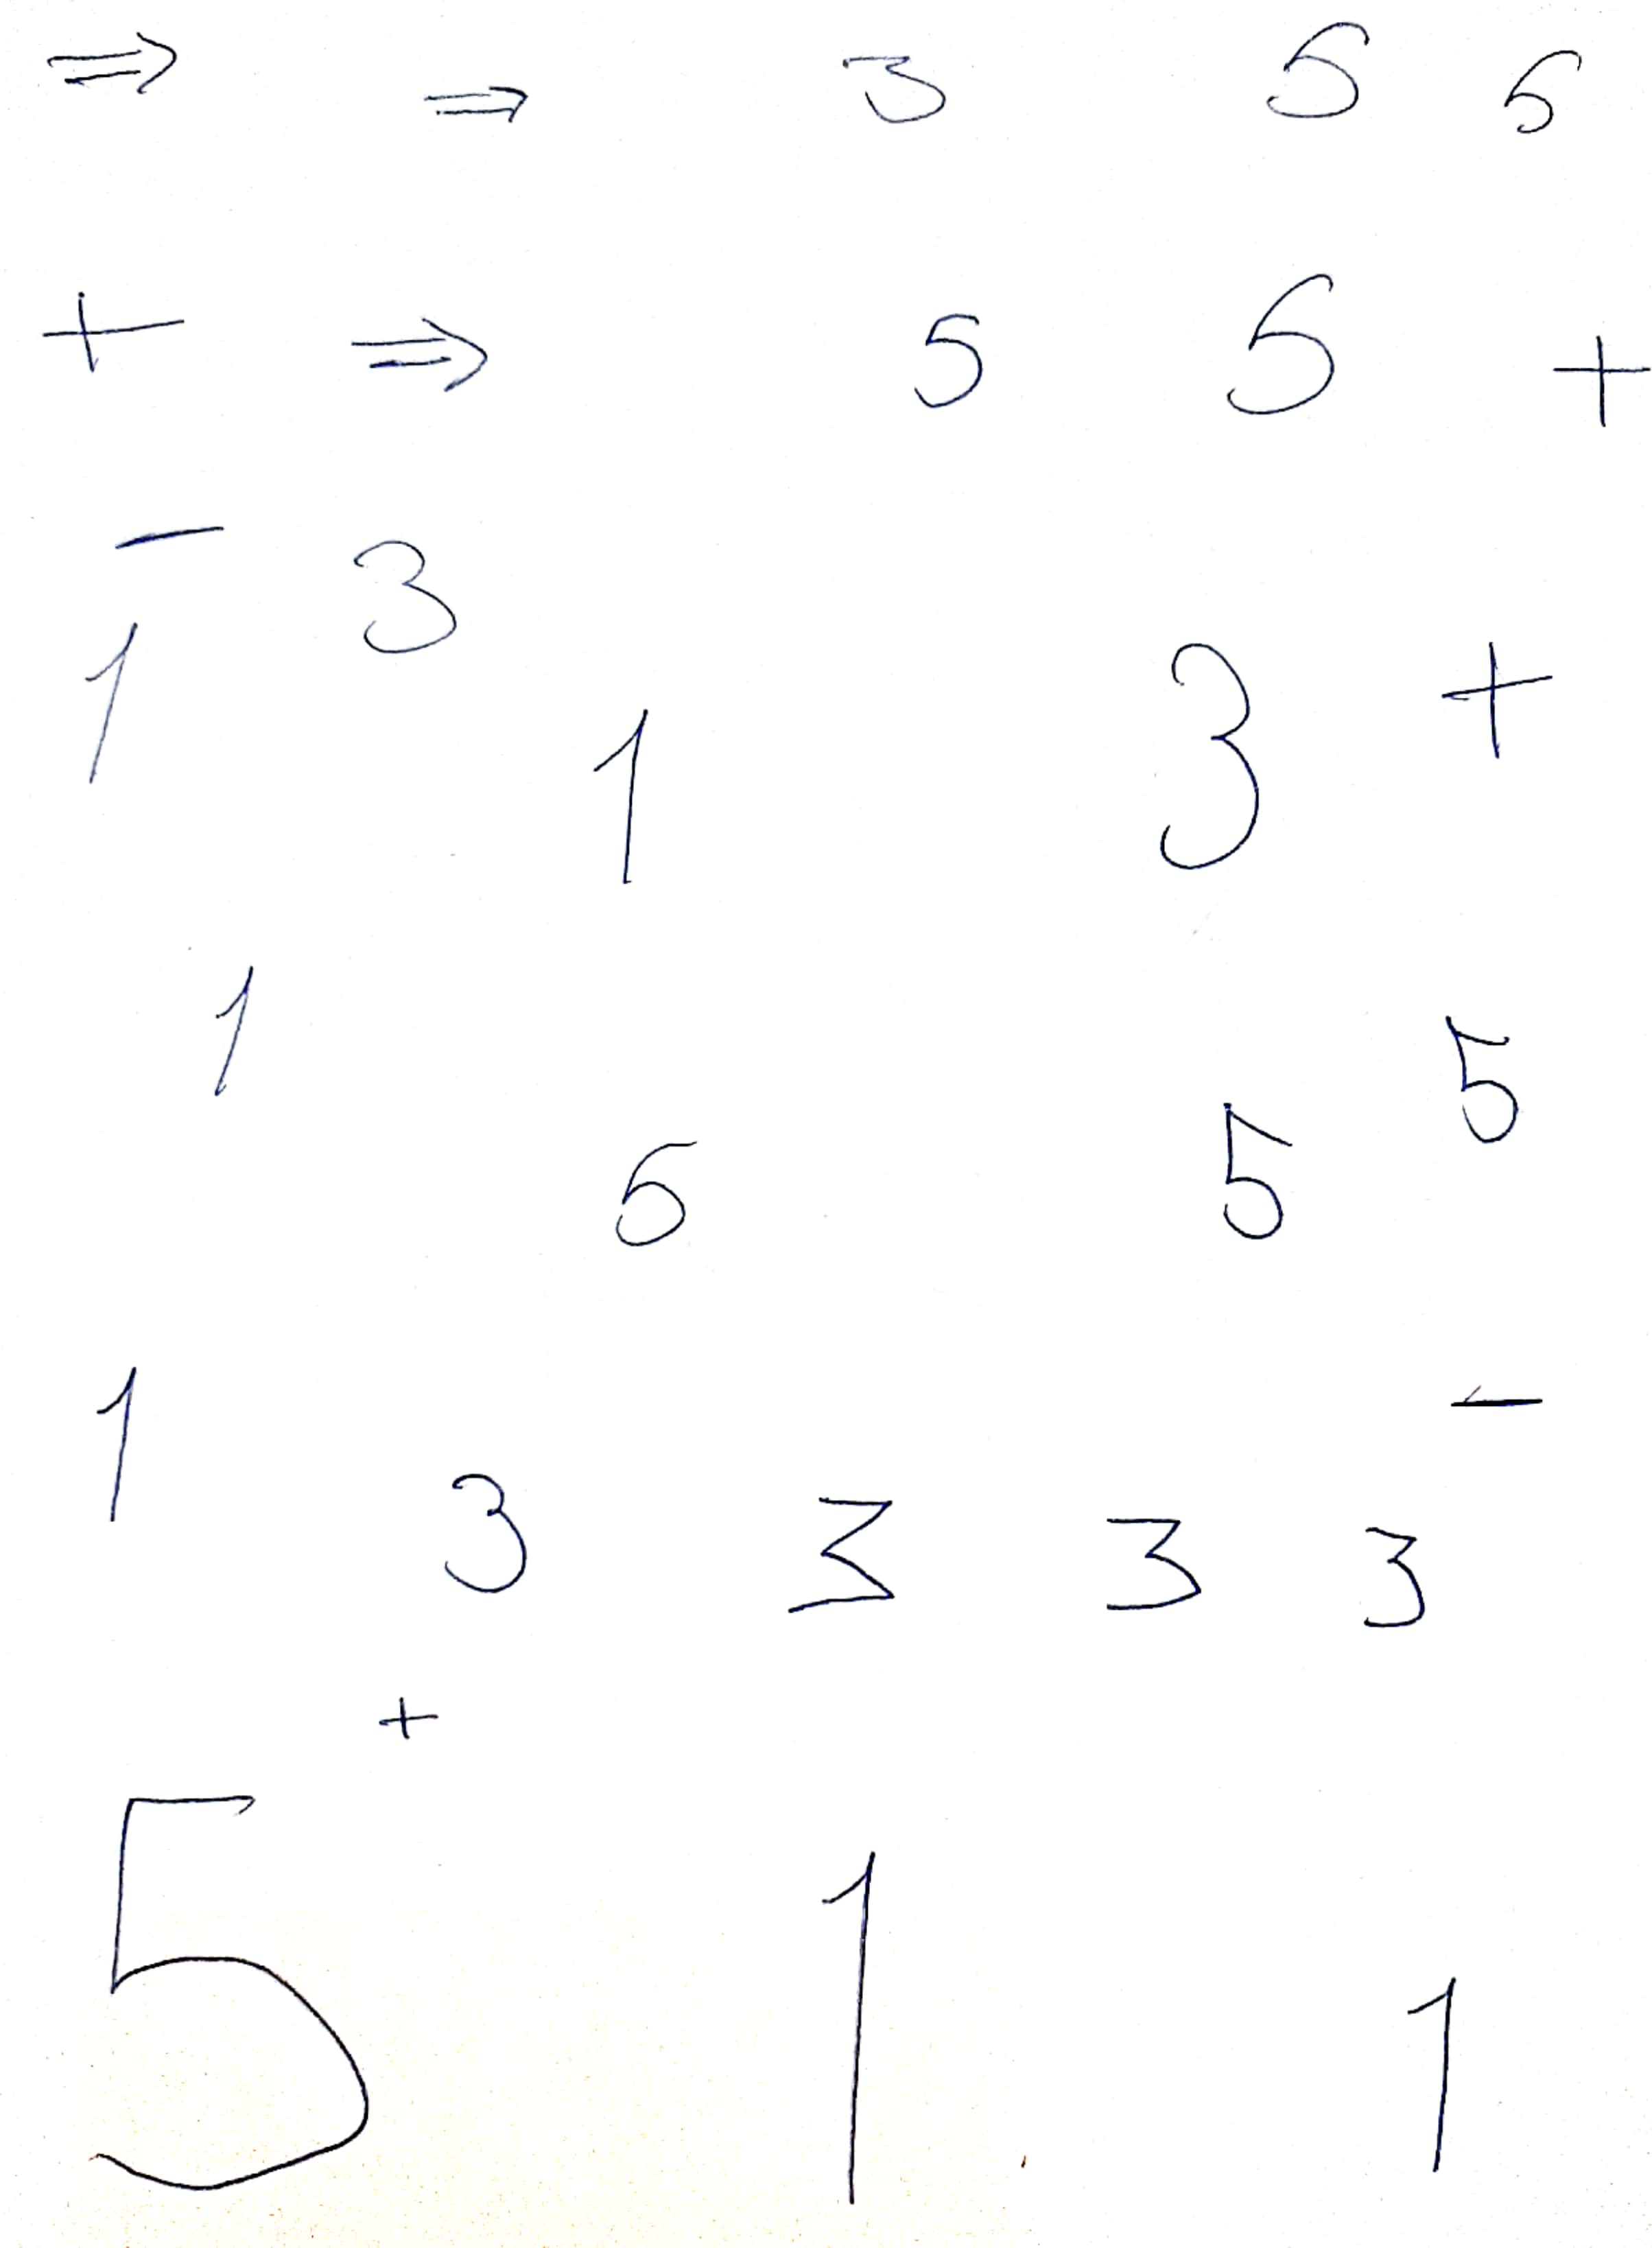 ⇒ ⇒ 3 5 5
+ ⇒ 5 5 +
− 3
1 1 3 +
1 5 5 5
1 3 3 3 3 −
+
5 1 1